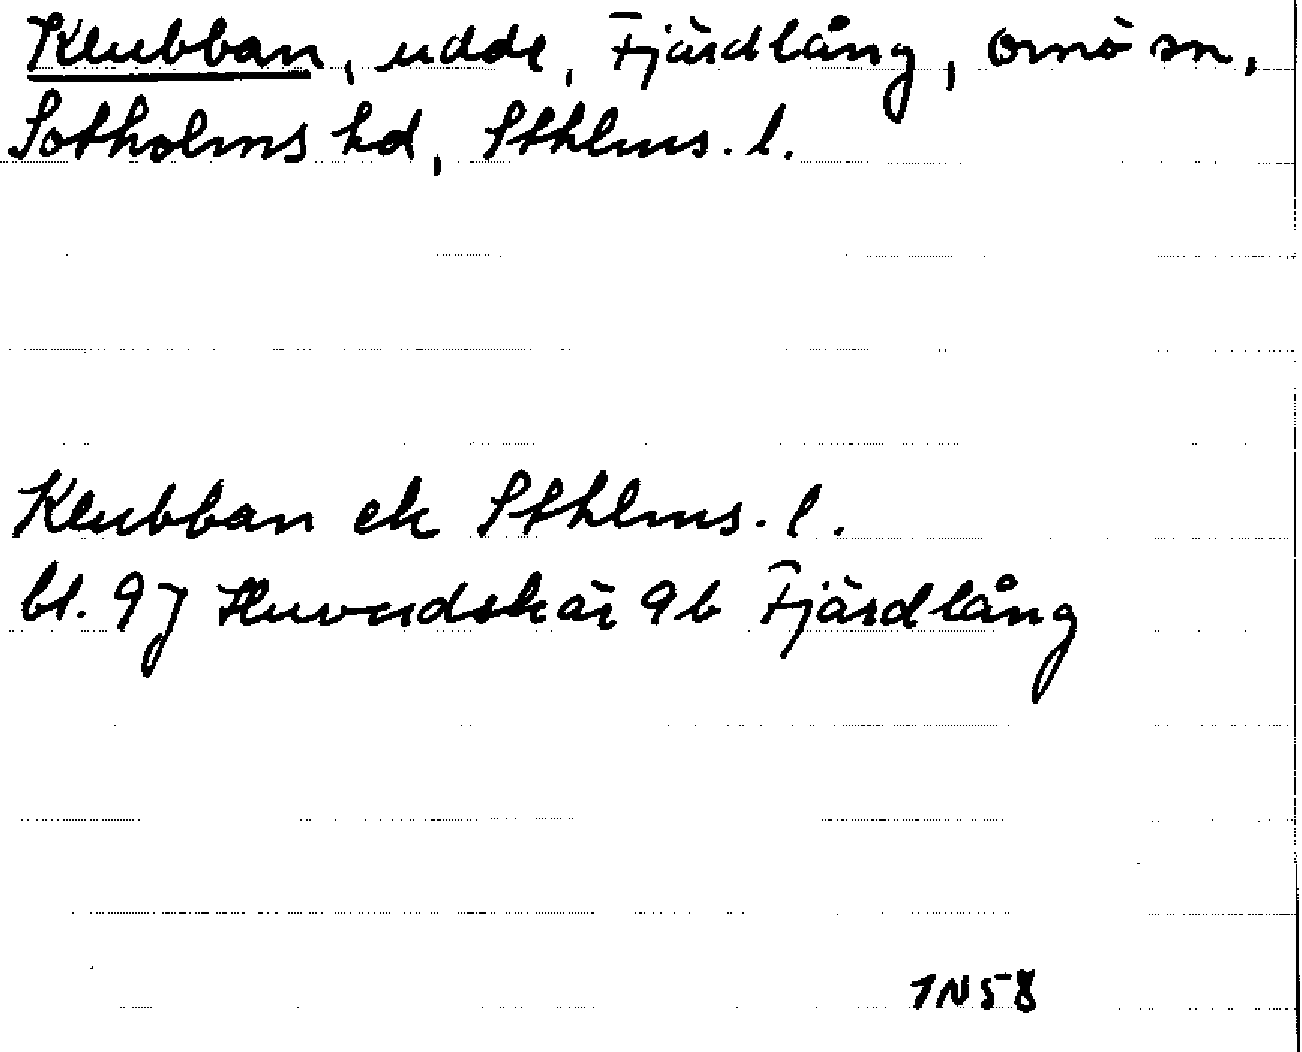 Klubban, udde, Fjärdlång, Ornö sn,
Sotholms hd, Sthlms. l.
Klubban ek Sthlms. l.
bl. 9J Huvudskär 9b Fjärdlång
1N58